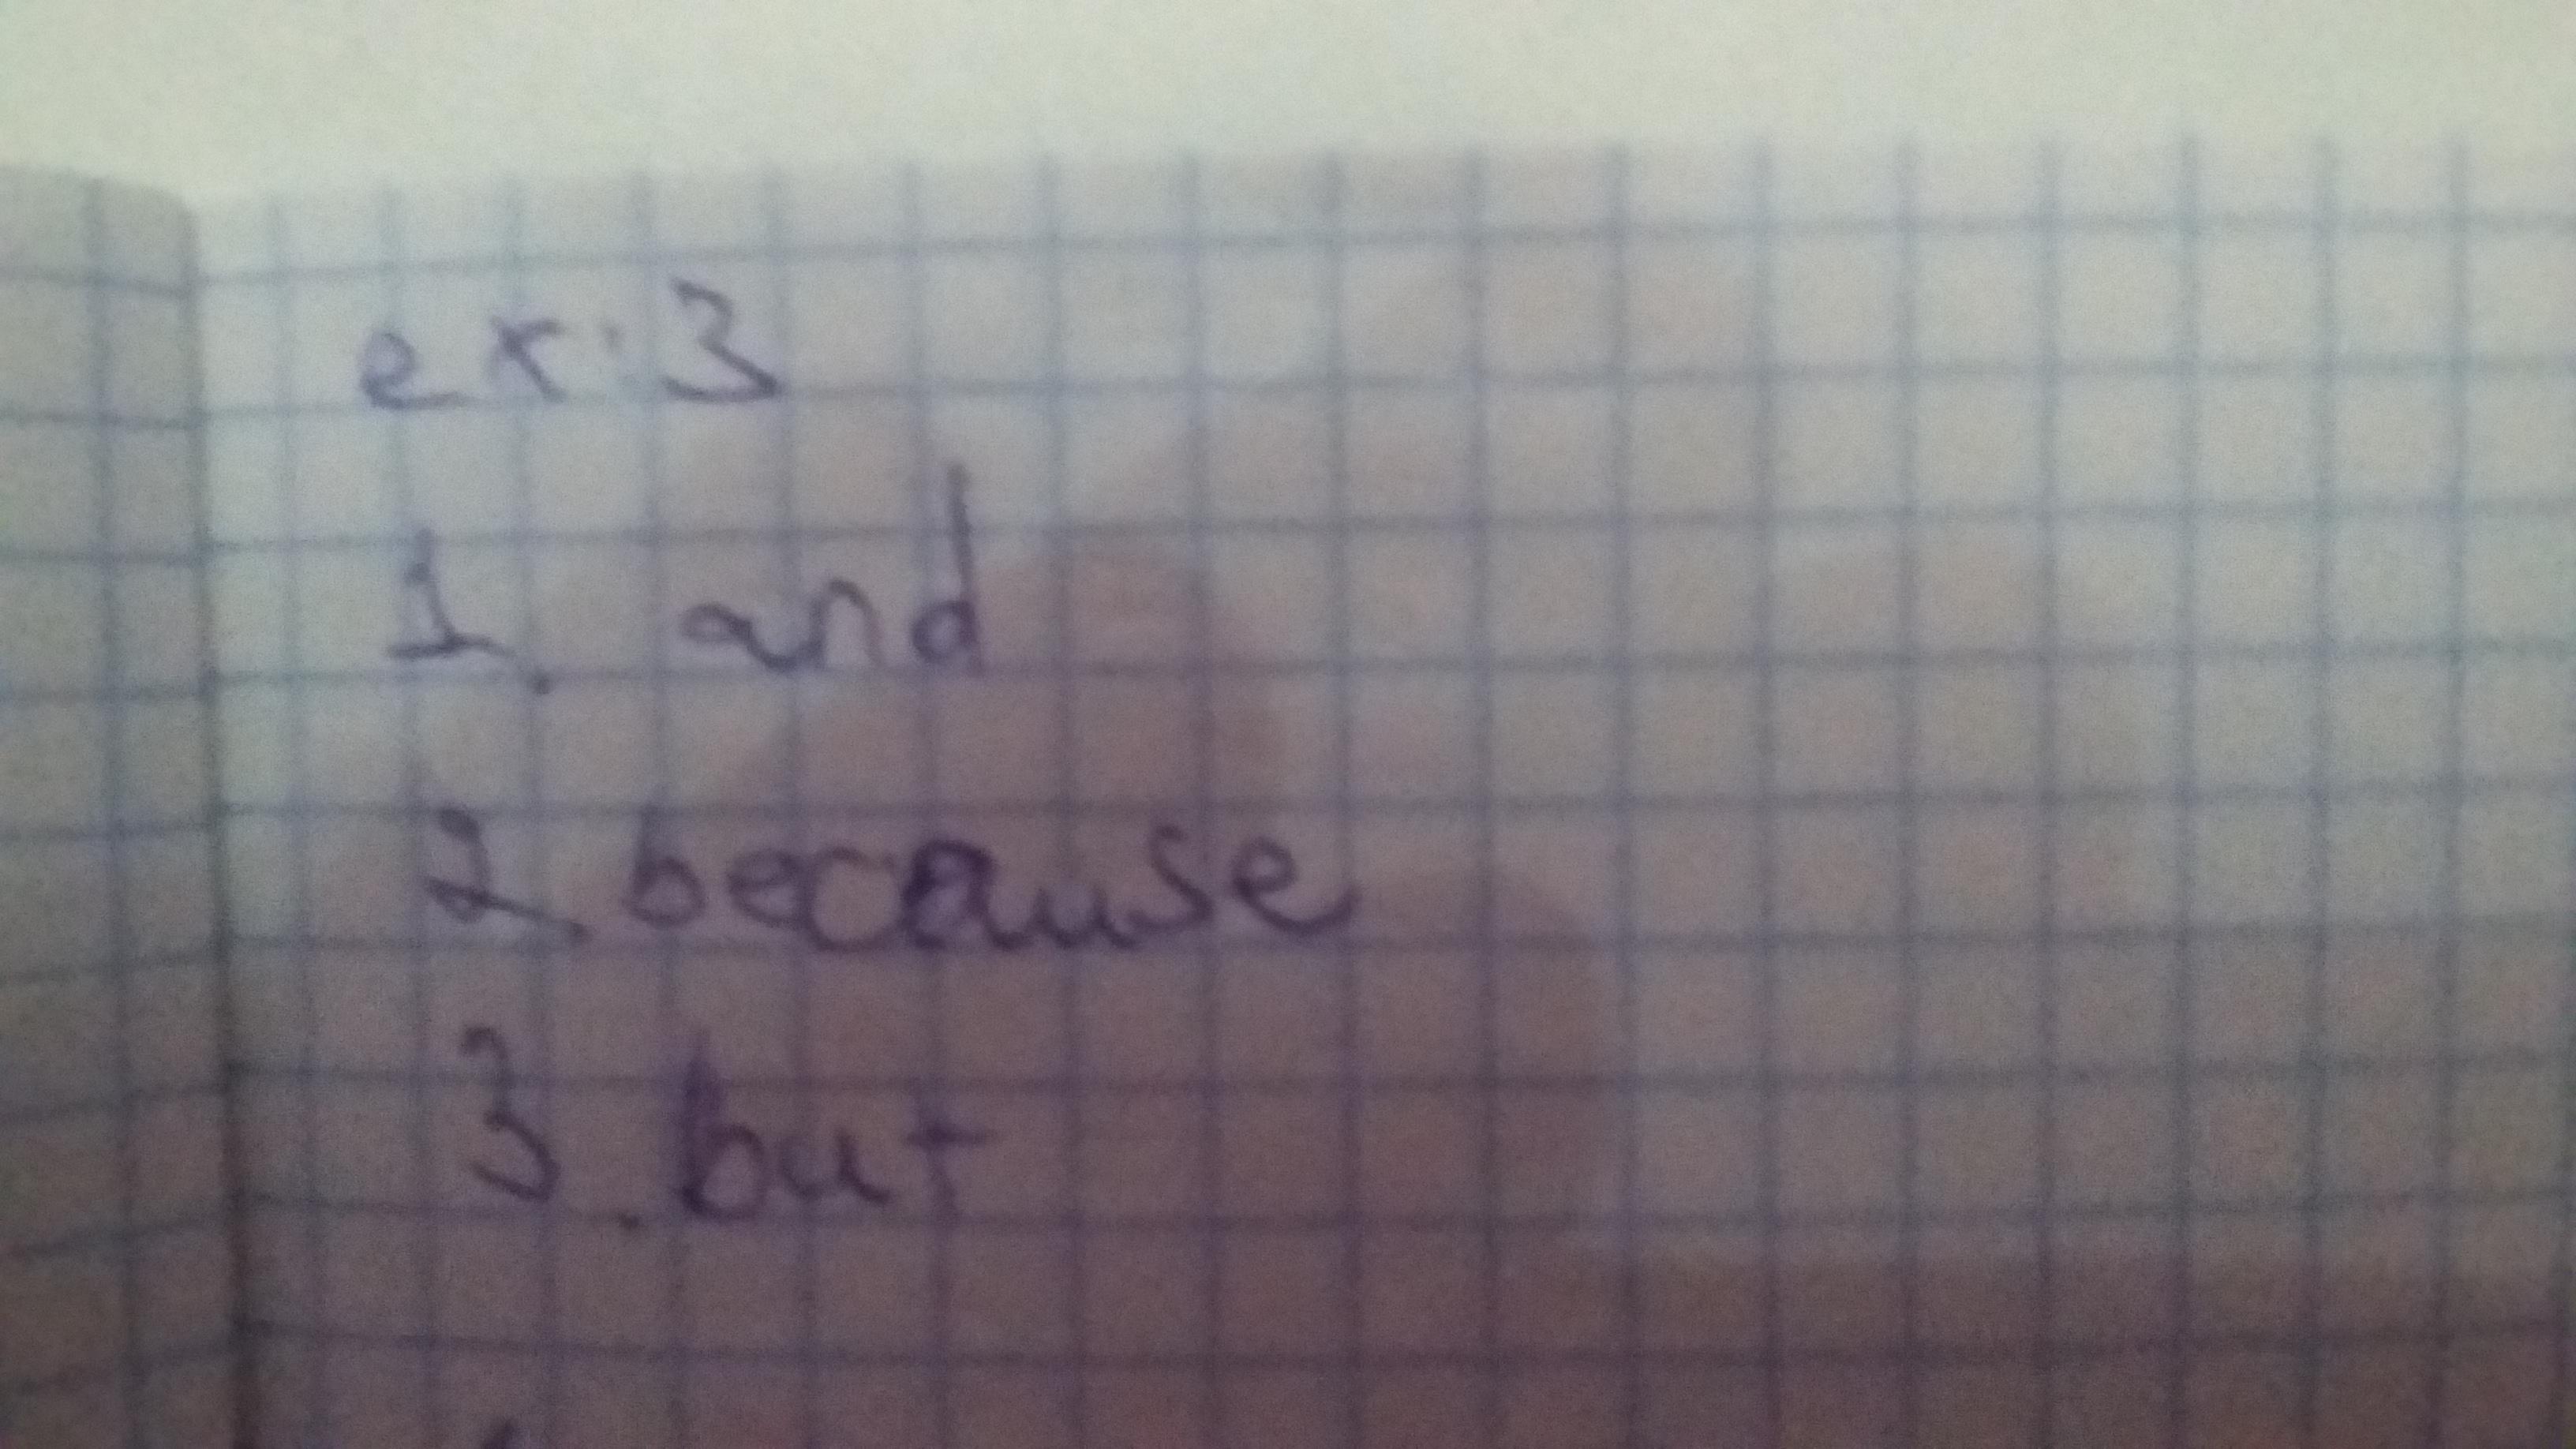 ex. 3
1. and
2. because
3. but